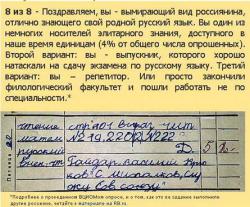 8 из 8 - Поздравляем, вы - вымирающий вид россиянина,
отлично знающего свой родной русский язык. Вы один из
немногих носителей элитарного знания, доступного в
наше время единицам (4% от общего числа опрошенных).
Второй вариант: вы - выпускник, которого хорошо
натаскали на сдачу экзамена по русскому языку. Третий
вариант: вы – репетитор. Или просто закончили
филологический факультет и пошли работать не по
специальности.*
Пятница
чтение стр. 101
матем № 19, 220 222
Д. 5
внек. чт Гайдар. василий
ков С. Михалков,
жу Совсоюзу
*Подробнее о проведенном ВЦИОМом опросе, и о том, как это же задание выполнили
другие россияне, читайте в материале на RB.ru.